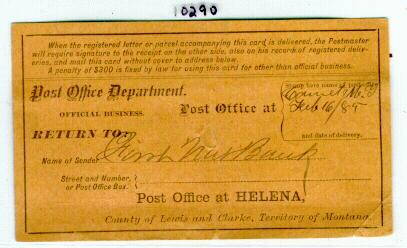 10290
When the registered letter or parcel accompanying this card is delivered, the Postmaster
will require signature to the receipt on the other side, also on his record of registered deliv-
eries, and mail this card without cover to address below.
A penalty of $300 is fixed by law for using this card for other than official business.
Post Office Department.
OFFICIAL BUSINESS.
Post Office at
name of
Feb 16/85
and date of delivery.
RETURN TO:
Name of Sender
First Nat Bank
Street and Number,
or Post Office Box.
Post Office at HELENA,
County of Lewis and Clarke, Territory of Montana.